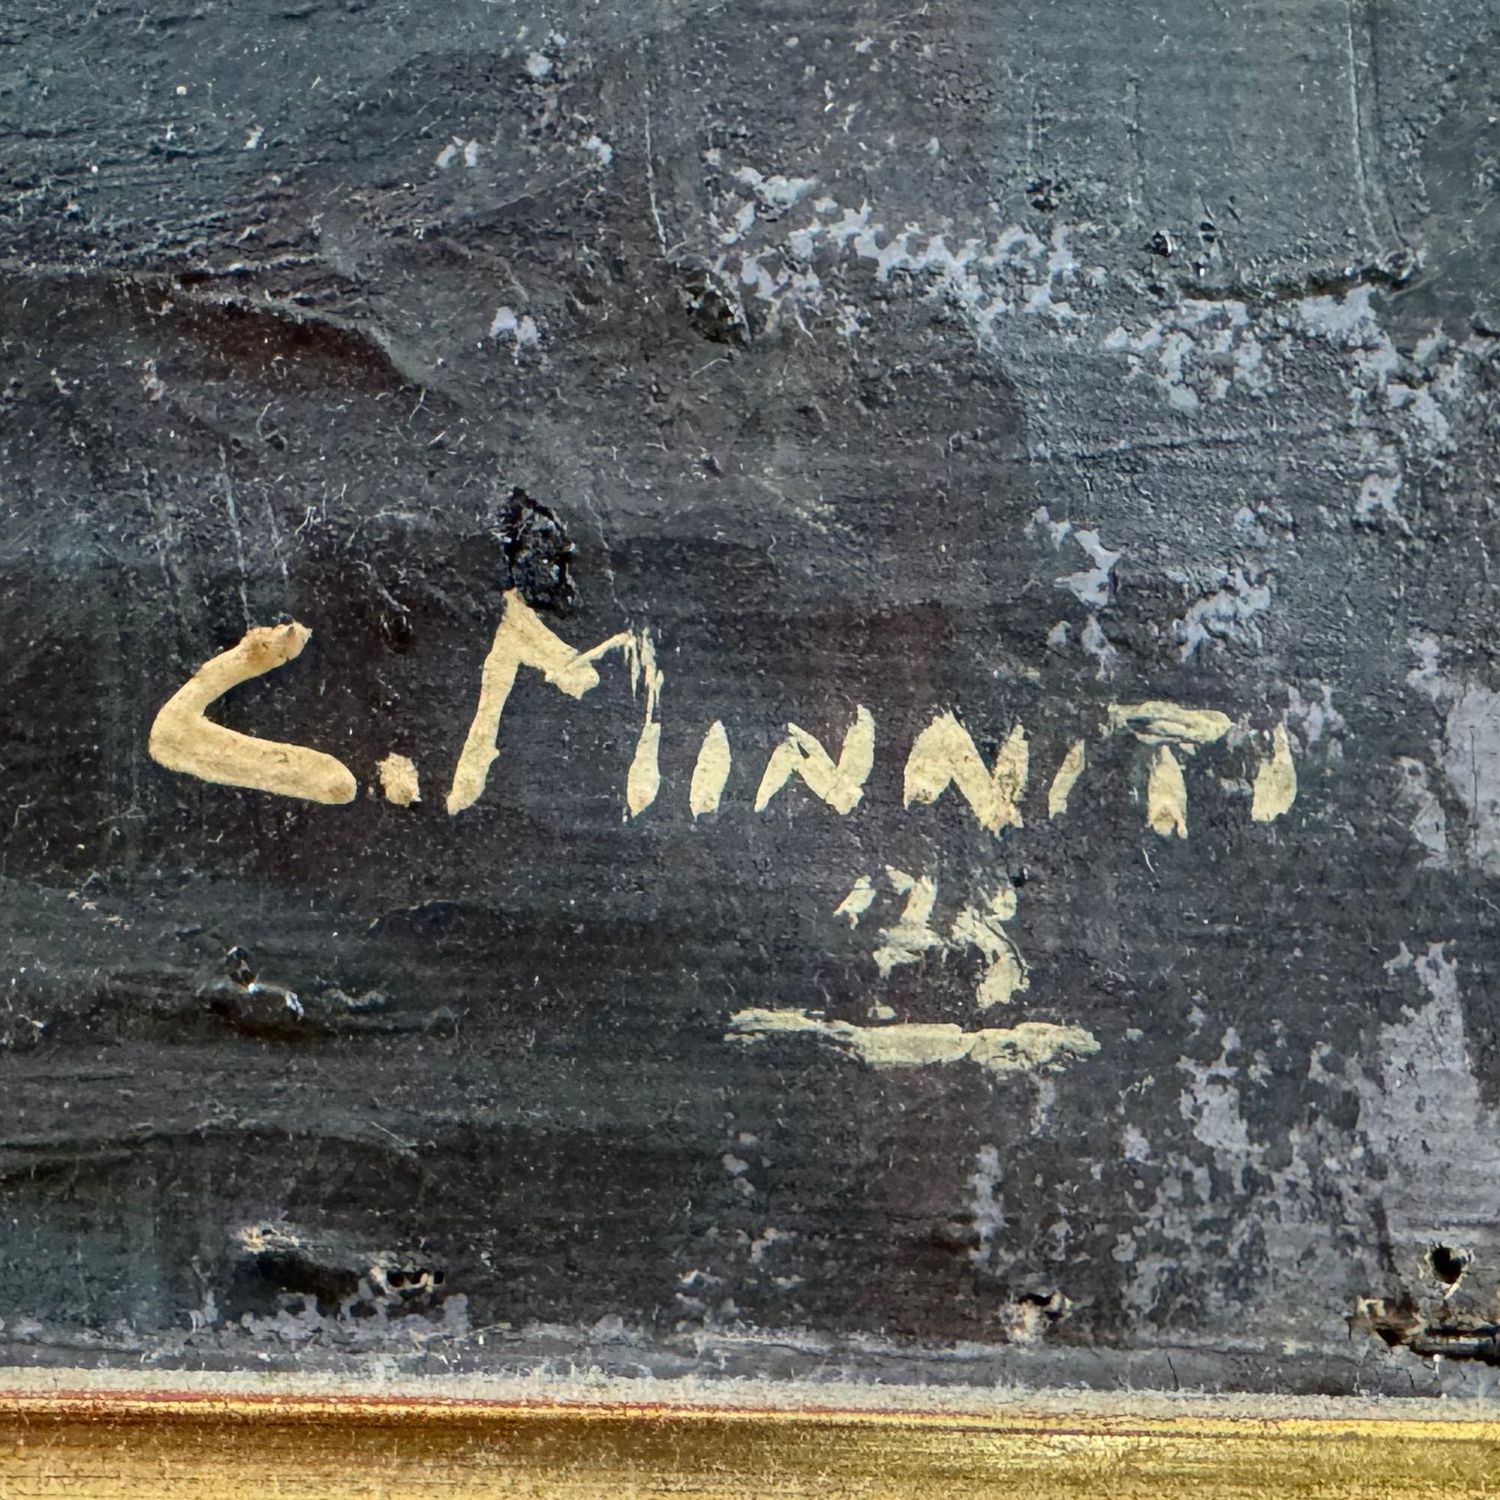 C. MINNITI
'25